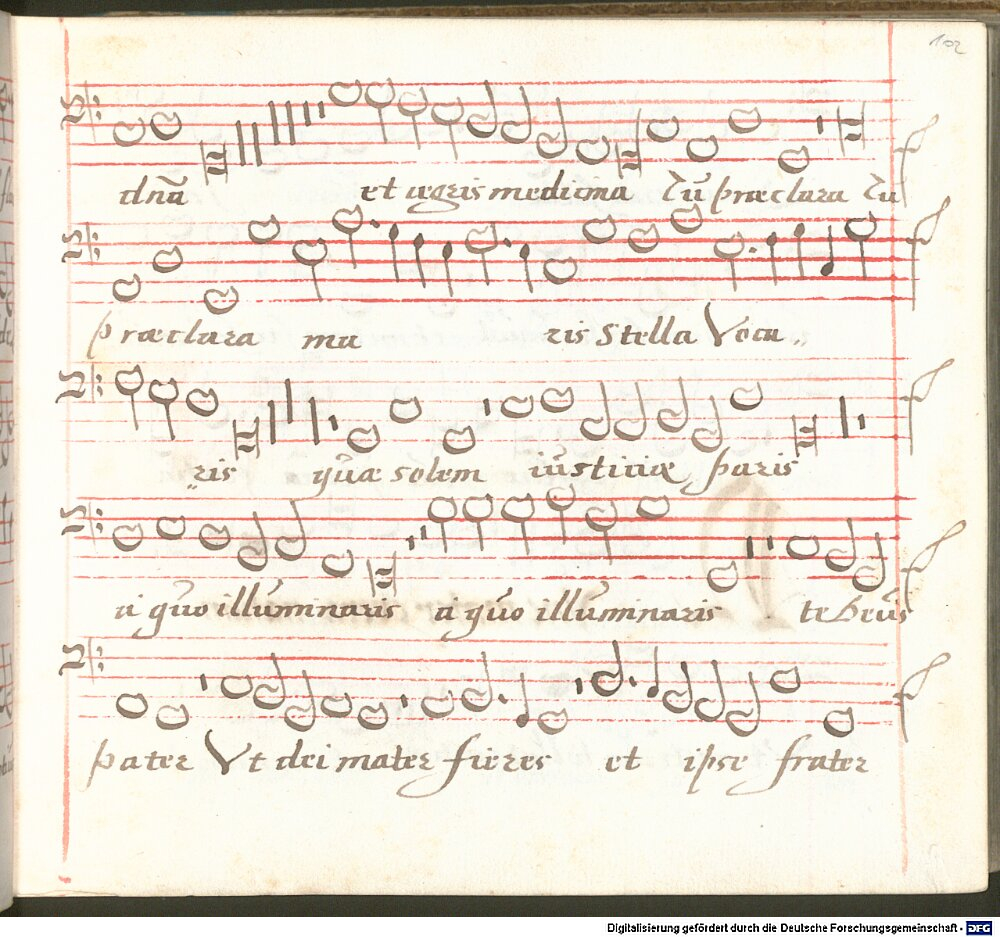 102
dnã et ægris medicina Tu præclara Tu
præclara ma ris Stella Voca„
„ris quæ solem iustitiæ paris
a quo illuminaris a quo illuminaris te Deus
pater Vt dei mater fieres et ipse frater
Digitalisierung gefördert durch die Deutsche Forschungsgemeinschaft - DFG